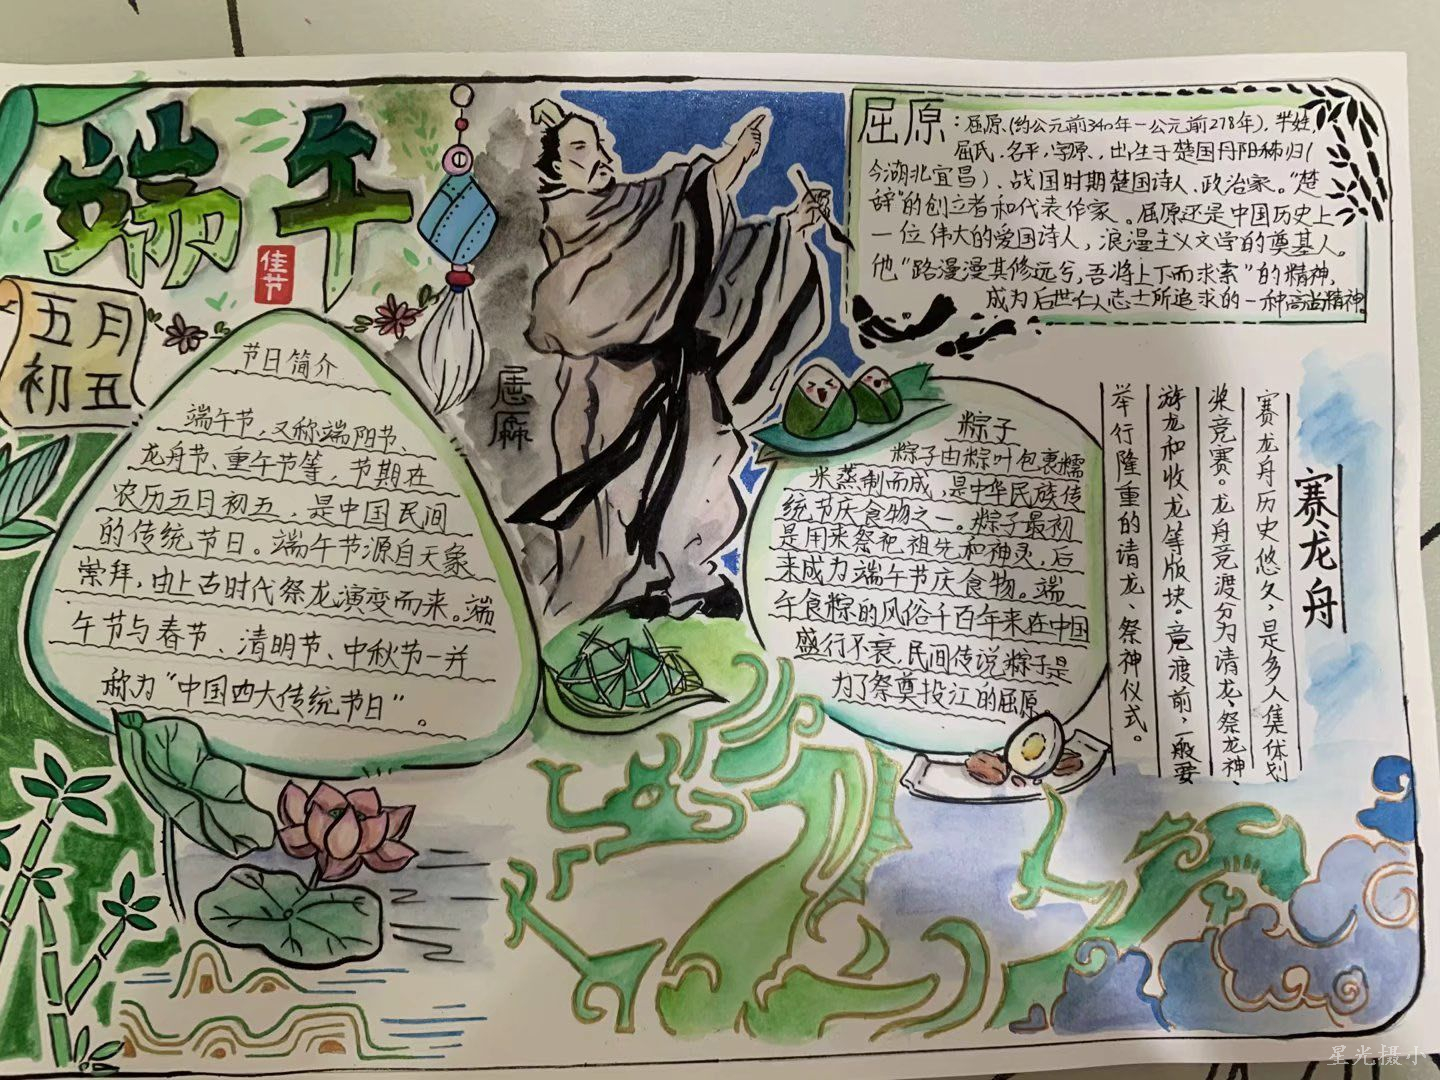 端午
佳节
五月
初五
节日简介
端午节，又称端阳节、
龙舟节、重午节等，节期在
农历五日初五，是中国民间
的传统节日。端午节源自天象
崇拜，由上古时代祭龙演变而来。端
午节与春节、清明节、中秋节一并
称为“中国四大传统节日”。
屈原
屈原：屈原（约公元前340年—公元前278年），芈姓，
屈氏，名平，字原，出生于楚国丹阳秭归（
今湖北宜昌），战国时期楚国诗人、政治家。“楚
辞”的创立者和代表作家。屈原还是中国历史上
一位伟大的爱国诗人，浪漫主义文学的奠基人。
他“路漫漫其修远兮，吾将上下而求索”的精神，
成为后世仁人志士所追求的一种高尚精神。
粽子
粽子由粽叶包裹糯
米蒸制而成，是中华民族传
统节庆食物之一。粽子最初
是用来祭祀祖先和神灵，后
来成为端午节庆食物。端
午食粽的风俗千百年来在中国
盛行不衰，民间传说粽子是
为了祭奠投江的屈原
赛龙舟
赛龙舟历史悠久，是多人集体划
桨竞赛。龙舟竞渡分为请龙、祭龙神、
游龙和收龙等版块。竞渡前，一般要
举行隆重的请龙、祭神仪式。
星光摄小